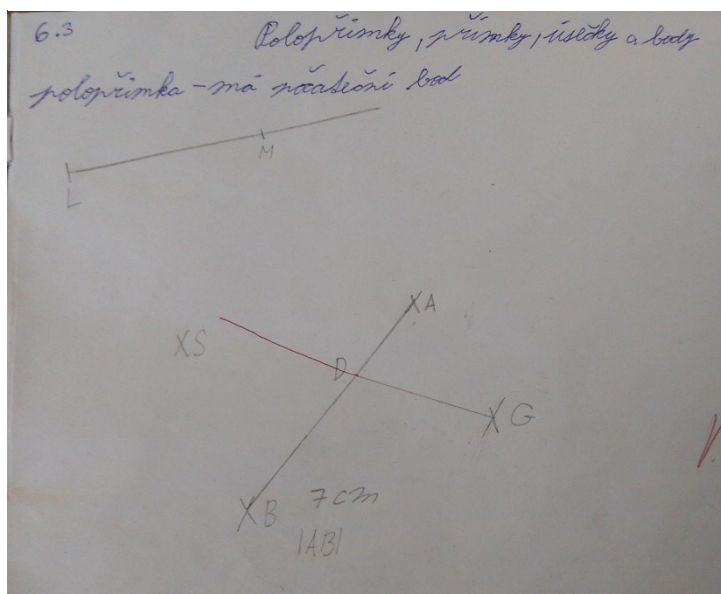 6.3 Polopřímky, přímky, úsečky a body
polopřímka - má počateční bod
M
L
A
S
D
G
B 7cm
|AB|